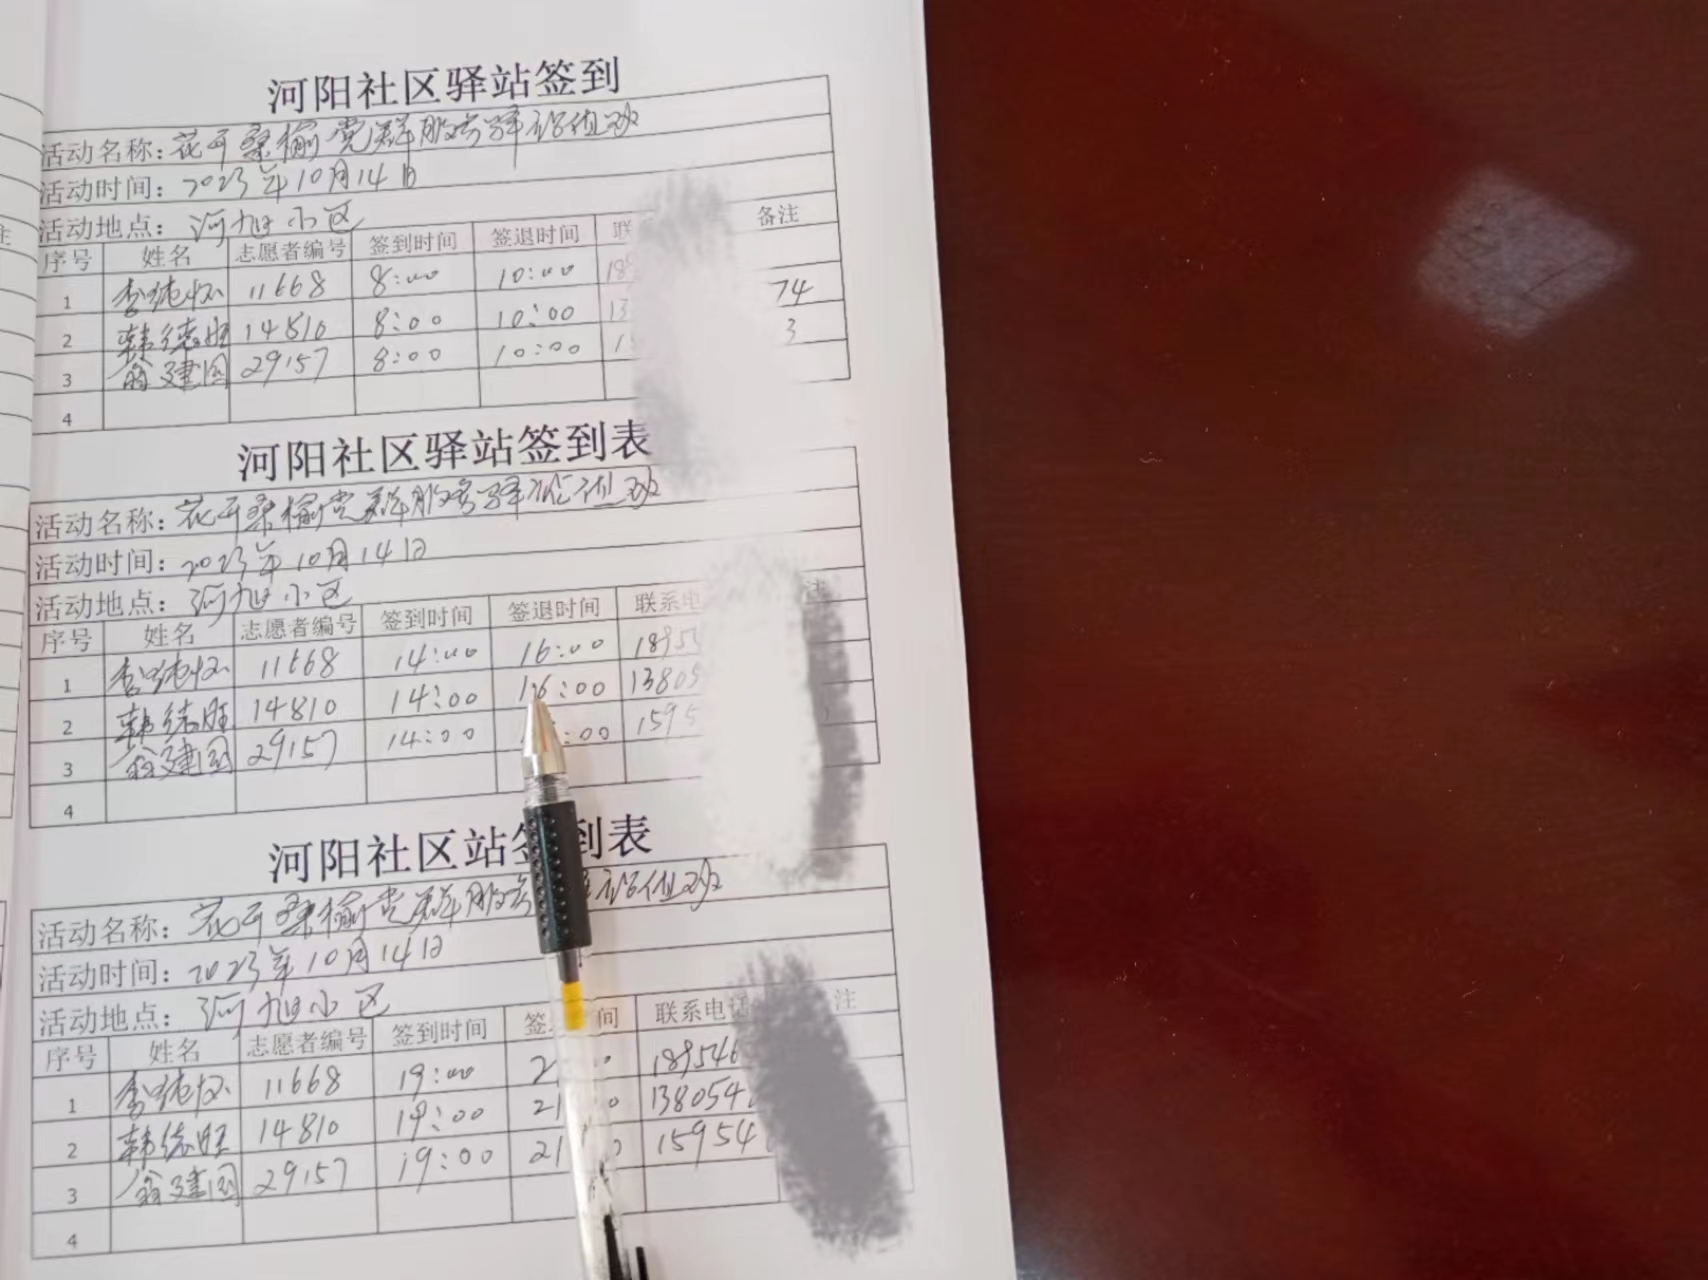 河阳社区驿站签到
活动名称：花开桑榆党群服务驿站值班
活动时间：2023年10月14日
活动地点：河旭小区
序号 姓名 志愿者编号 签到时间 签退时间 联 备注
1 李纯怀 11668 8:00 10:00 189
2 韩德旺 14810 8:00 10:00 13 74
3 翁建国 29157 8:00 10:00 1 3
4
河阳社区驿站签到表
活动名称：花开桑榆党群服务驿站值班
活动时间：2023年10月14日
活动地点：河旭小区
序号 姓名 志愿者编号 签到时间 签退时间 联系电 注
1 李纯怀 11668 14:00 16:00 1895
2 韩德旺 14810 14:00 16:00 13805
3 翁建国 29157 14:00 :00 1595
4
河阳社区站签到表
活动名称：花开桑榆党群服务 站值班
活动时间：2023年10月14日
活动地点：河旭小区
序号 姓名 志愿者编号 签到时间 签 间 联系电话 注
1 李纯怀 11668 19:00 2 0 189546
2 韩德旺 14810 19:00 21 0 138054
3 翁建国 29157 19:00 21 0 15954
4